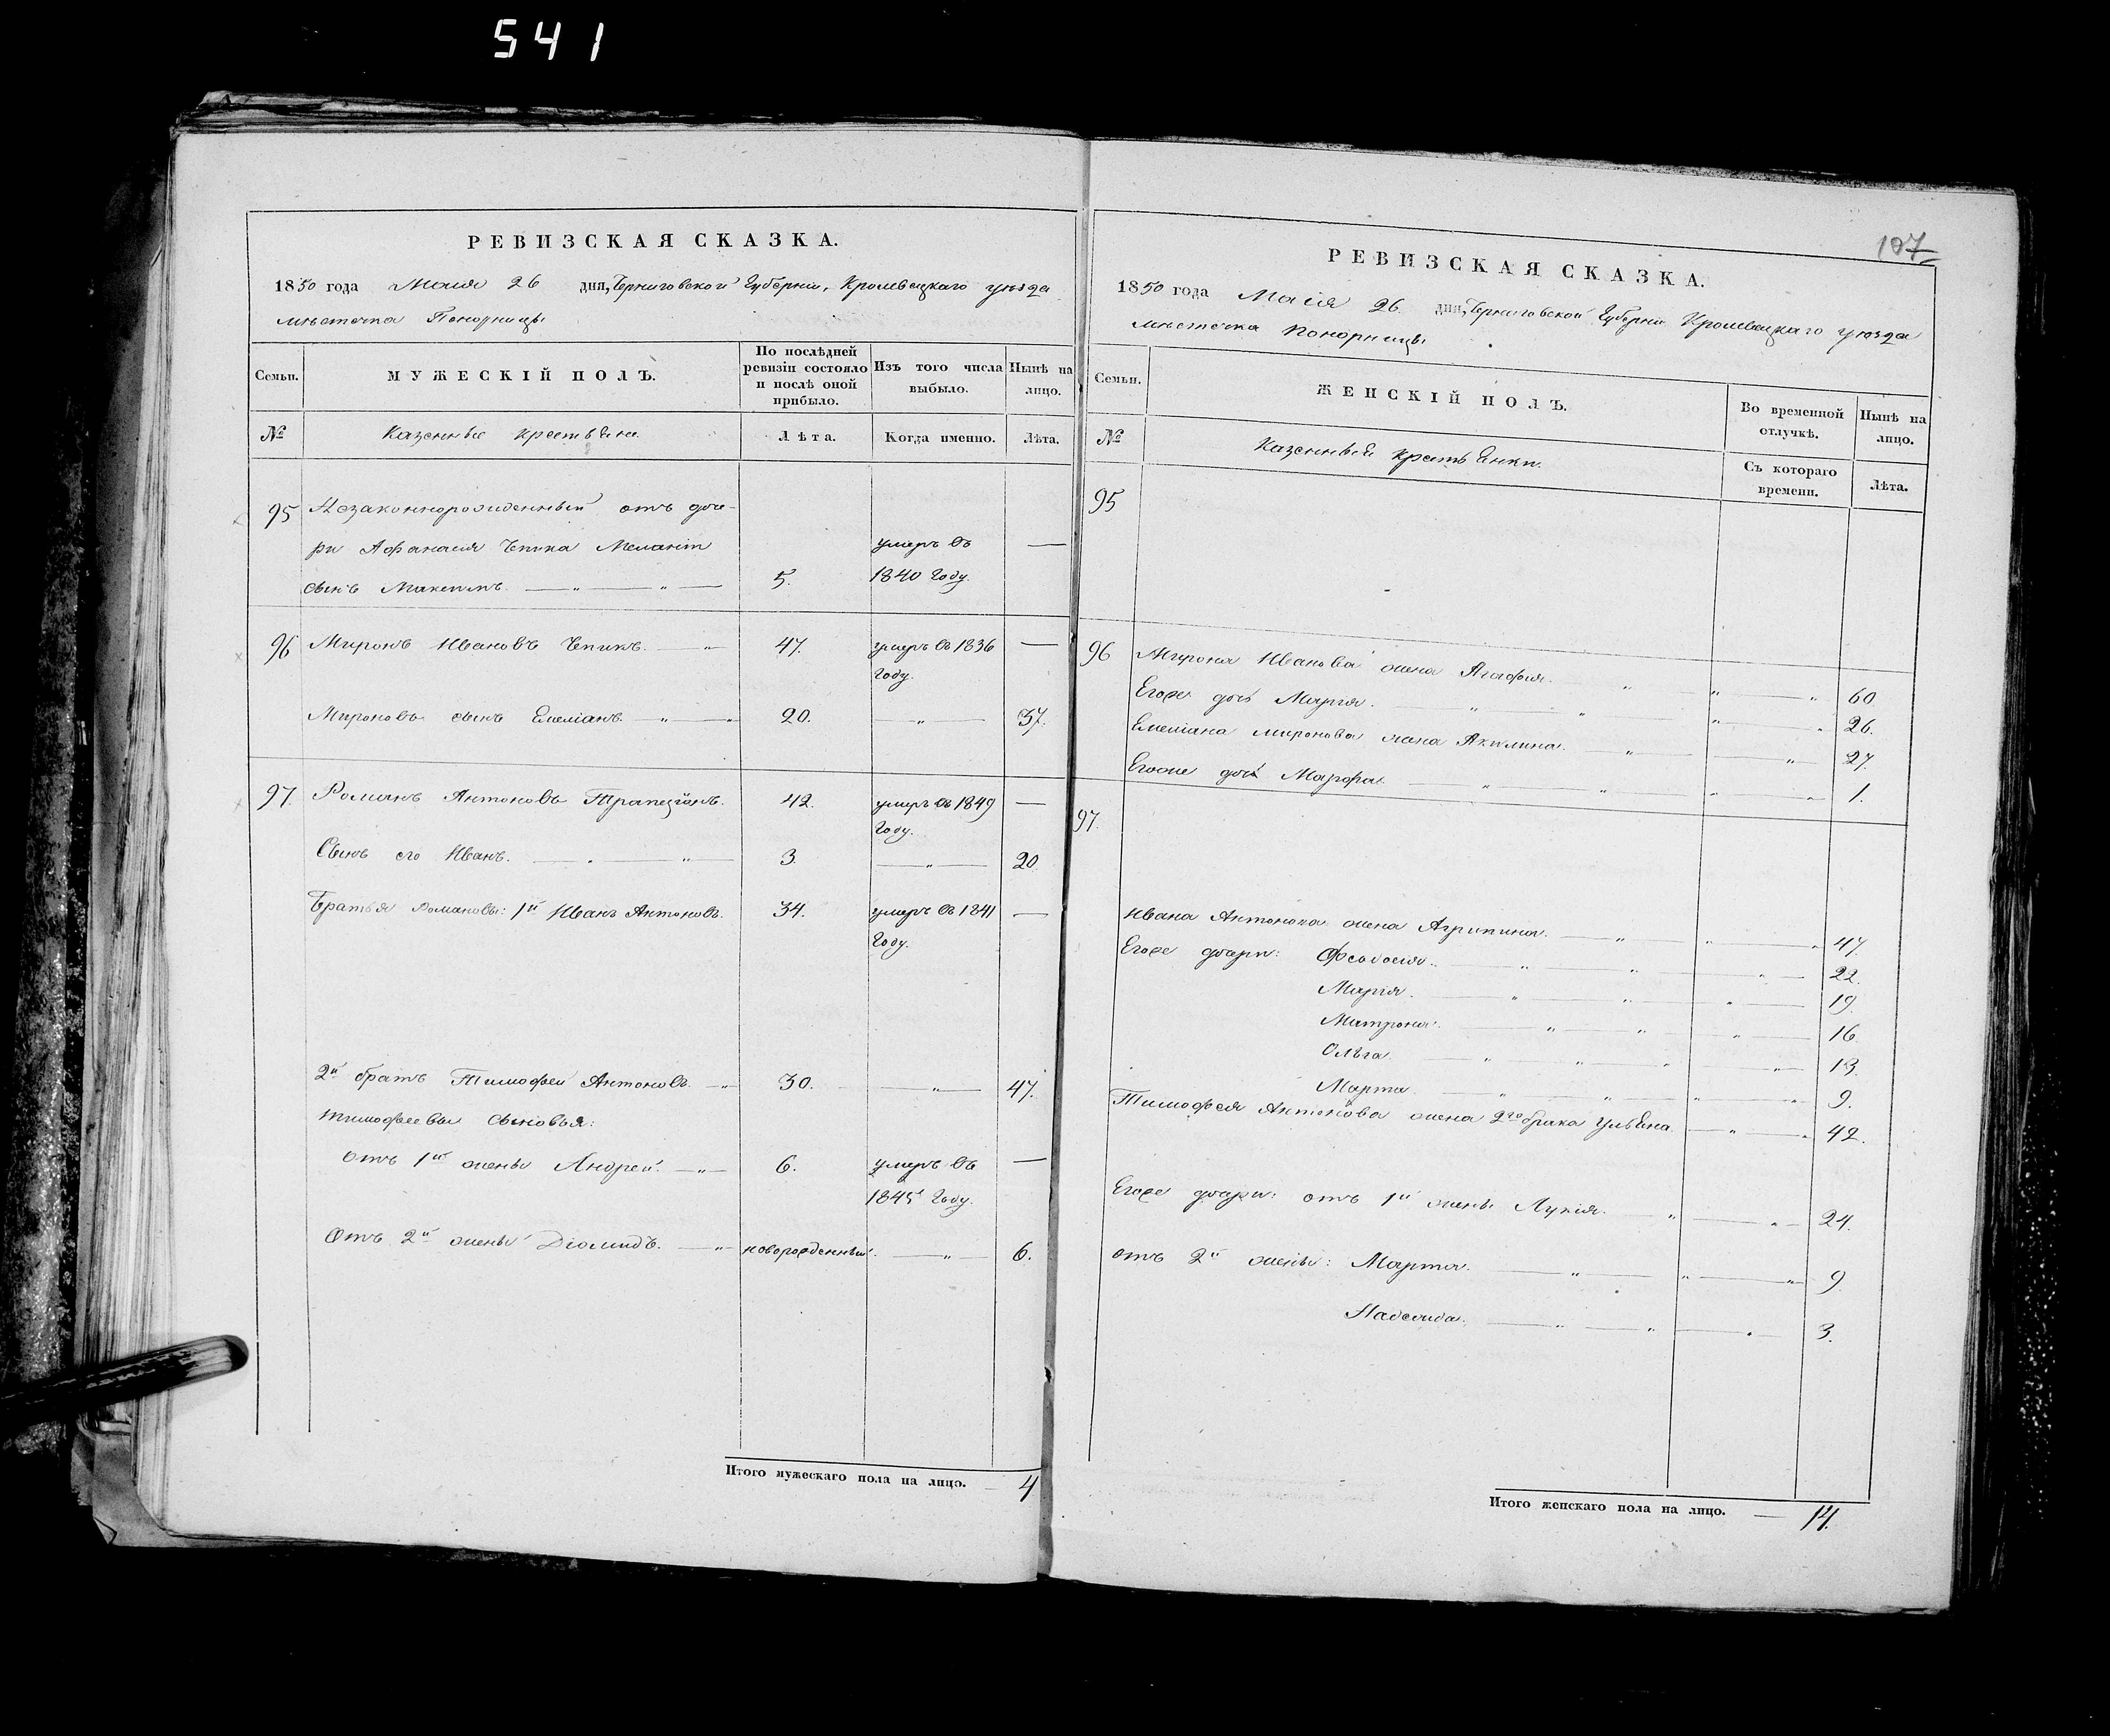 541
107
РЕВИЗСКАЯ СКАЗКА.
1850 года Маія 26 дня, Черниговской Губерніи, Кролевецкаго уѣзда
мѣстечка Понорницы
Семьи. МУЖЕСКІЙ ПОЛЪ. По послѣдней ревизіи состояло и послѣ оной прибыло. Изъ того числа выбыло. Нынѣ на лицо.
№ Казенные крестьяне. Лѣта. Когда именно. Лѣта.
95 Незаконнорожденный отъ доче-
ри Афанасія Чепика Меланіи умеръ въ —
сынъ Максимъ. 5. 1840 Году.
96 Миронъ Ивановъ Чепикъ. 47. умеръ въ 1836 —
Году.
Мироновъ сынъ Емеліанъ. 20. — 37.
97. Романъ Антоновъ 42. умеръ въ 1849 —
Году.
Сынъ его Иванъ. 3. — 20.
Братья Романовы: 1й Иванъ Антоновъ. 34. умеръ въ 1841 —
Году.
2й братъ Тимофей Антоновъ. 30. — 47.
Тимофеевы сыновья:
отъ 1й жены Андрей. 6. умеръ въ —
Году.
Отъ 2й жены Діомидъ. новорожденный. — 6.
Итого мужескаго пола на лицо. — 4
РЕВИЗСКАЯ СКАЗКА.
1850 года Маія 26. дня, Черниговской Губерніи Кролевецкаго уѣзда
мѣстечка Понорницы
Семьи. ЖЕНСКІЙ ПОЛЪ. Во временной отлучкѣ. Нынѣ на лицо.
№ Казенные крестьянки. Съ котораго времени. Лѣта.
95
96 Мирона Иванова жена Агафія. 60
Егоже дочь Марія. 26.
Емеліана Миронова жена Акилина. 27.
Егоже дочь Марфа. 1.
97.
Ивана Антонова жена Агрипина. 47.
Егоже дочери: Феодосія. 22.
Марія. 19.
Матрона. 16.
Ольга. 13.
Марта. 9.
Тимофея Антонова жена 2го брака Ульяна. 42.
Егоже дочери: отъ 1й жены Лукія. 24.
отъ 2й жены: Марта. 9
Надежда. 3.
Итого женскаго пола на лицо. — 14.